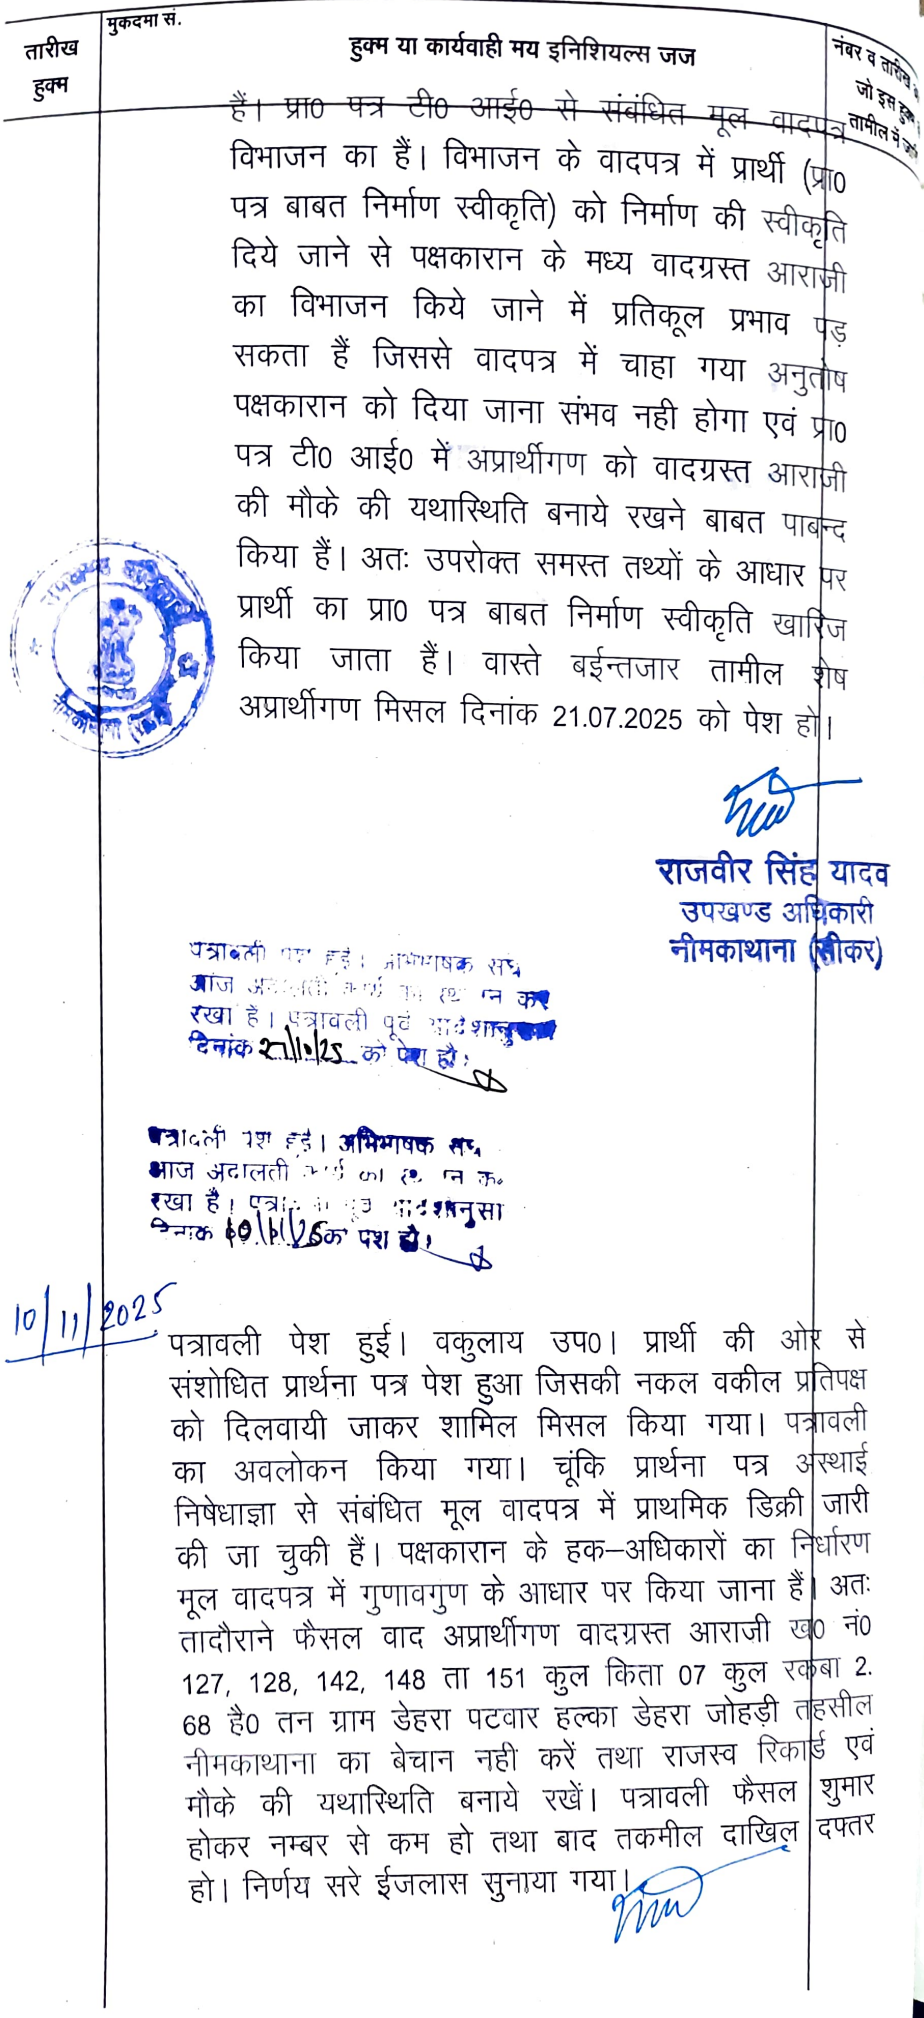 मुकदमा सं.
तारीख
हुक्म
हुक्म या कार्यवाही मय इनिशियल्स जज
नंबर व तारीख
जो इस हुक्म
तामील में
हैं। प्रा0 पत्र टी0 आई0 से संबंधित मूल वादपत्र
विभाजन का हैं। विभाजन के वादपत्र में प्रार्थी (प्रा0
पत्र बाबत निर्माण स्वीकृति) को निर्माण की स्वीकृति
दिये जाने से पक्षकारान के मध्य वादग्रस्त आराजी
का विभाजन किये जाने में प्रतिकूल प्रभाव पड़
सकता हैं जिससे वादपत्र में चाहा गया अनुतोष
पक्षकारान को दिया जाना संभव नही होगा एवं प्रा0
पत्र टी0 आई0 में अप्रार्थीगण को वादग्रस्त आराजी
की मौके की यथास्थिति बनाये रखने बाबत पाबन्द
किया हैं। अतः उपरोक्त समस्त तथ्यों के आधार पर
प्रार्थी का प्रा0 पत्र बाबत निर्माण स्वीकृति खारिज
किया जाता हैं। वास्ते बईन्तजार तामील शेष
अप्रार्थीगण मिसल दिनांक 21.07.2025 को पेश हो।
उपखण्ड अधिकारी
नीमकाथाना
राजवीर सिंह यादव
उपखण्ड अधिकारी
नीमकाथाना (सीकर)
पत्रावली पेश हुई। अभिभाषक संघ
आज अदालती कार्य का स्थगन कर
रखा है। पत्रावली पूर्व आदेशानुसार
दिनांक को पेश हो।
पत्रावली पेश हुई। अभिभाषक संघ
आज अदालती कार्य का स्थगन कर
रखा है। आदेशानुसा
दिनांक 10/11/25 को पेश हो।
10/11/2025
पत्रावली पेश हुई। वकुलाय उप0। प्रार्थी की ओर से
संशोधित प्रार्थना पत्र पेश हुआ जिसकी नकल वकील प्रतिपक्ष
को दिलवायी जाकर शामिल मिसल किया गया। पत्रावली
का अवलोकन किया गया। चूंकि प्रार्थना पत्र अस्थाई
निषेधाज्ञा से संबंधित मूल वादपत्र में प्राथमिक डिक्री जारी
की जा चुकी हैं। पक्षकारान के हक–अधिकारों का निर्धारण
मूल वादपत्र में गुणावगुण के आधार पर किया जाना हैं। अतः
तादौराने फैसल वाद अप्रार्थीगण वादग्रस्त आराजी ख0 नं0
127, 128, 142, 148 ता 151 कुल किता 07 कुल रकबा 2.
68 है0 तन ग्राम डेहरा पटवार हल्का डेहरा जोहड़ी तहसील
नीमकाथाना का बेचान नही करें तथा राजस्व रिकार्ड एवं
मौके की यथास्थिति बनाये रखें। पत्रावली फैसल शुमार
होकर नम्बर से कम हो तथा बाद तकमील दाखिल दफ्तर
हो। निर्णय सरे ईजलास सुनाया गया।